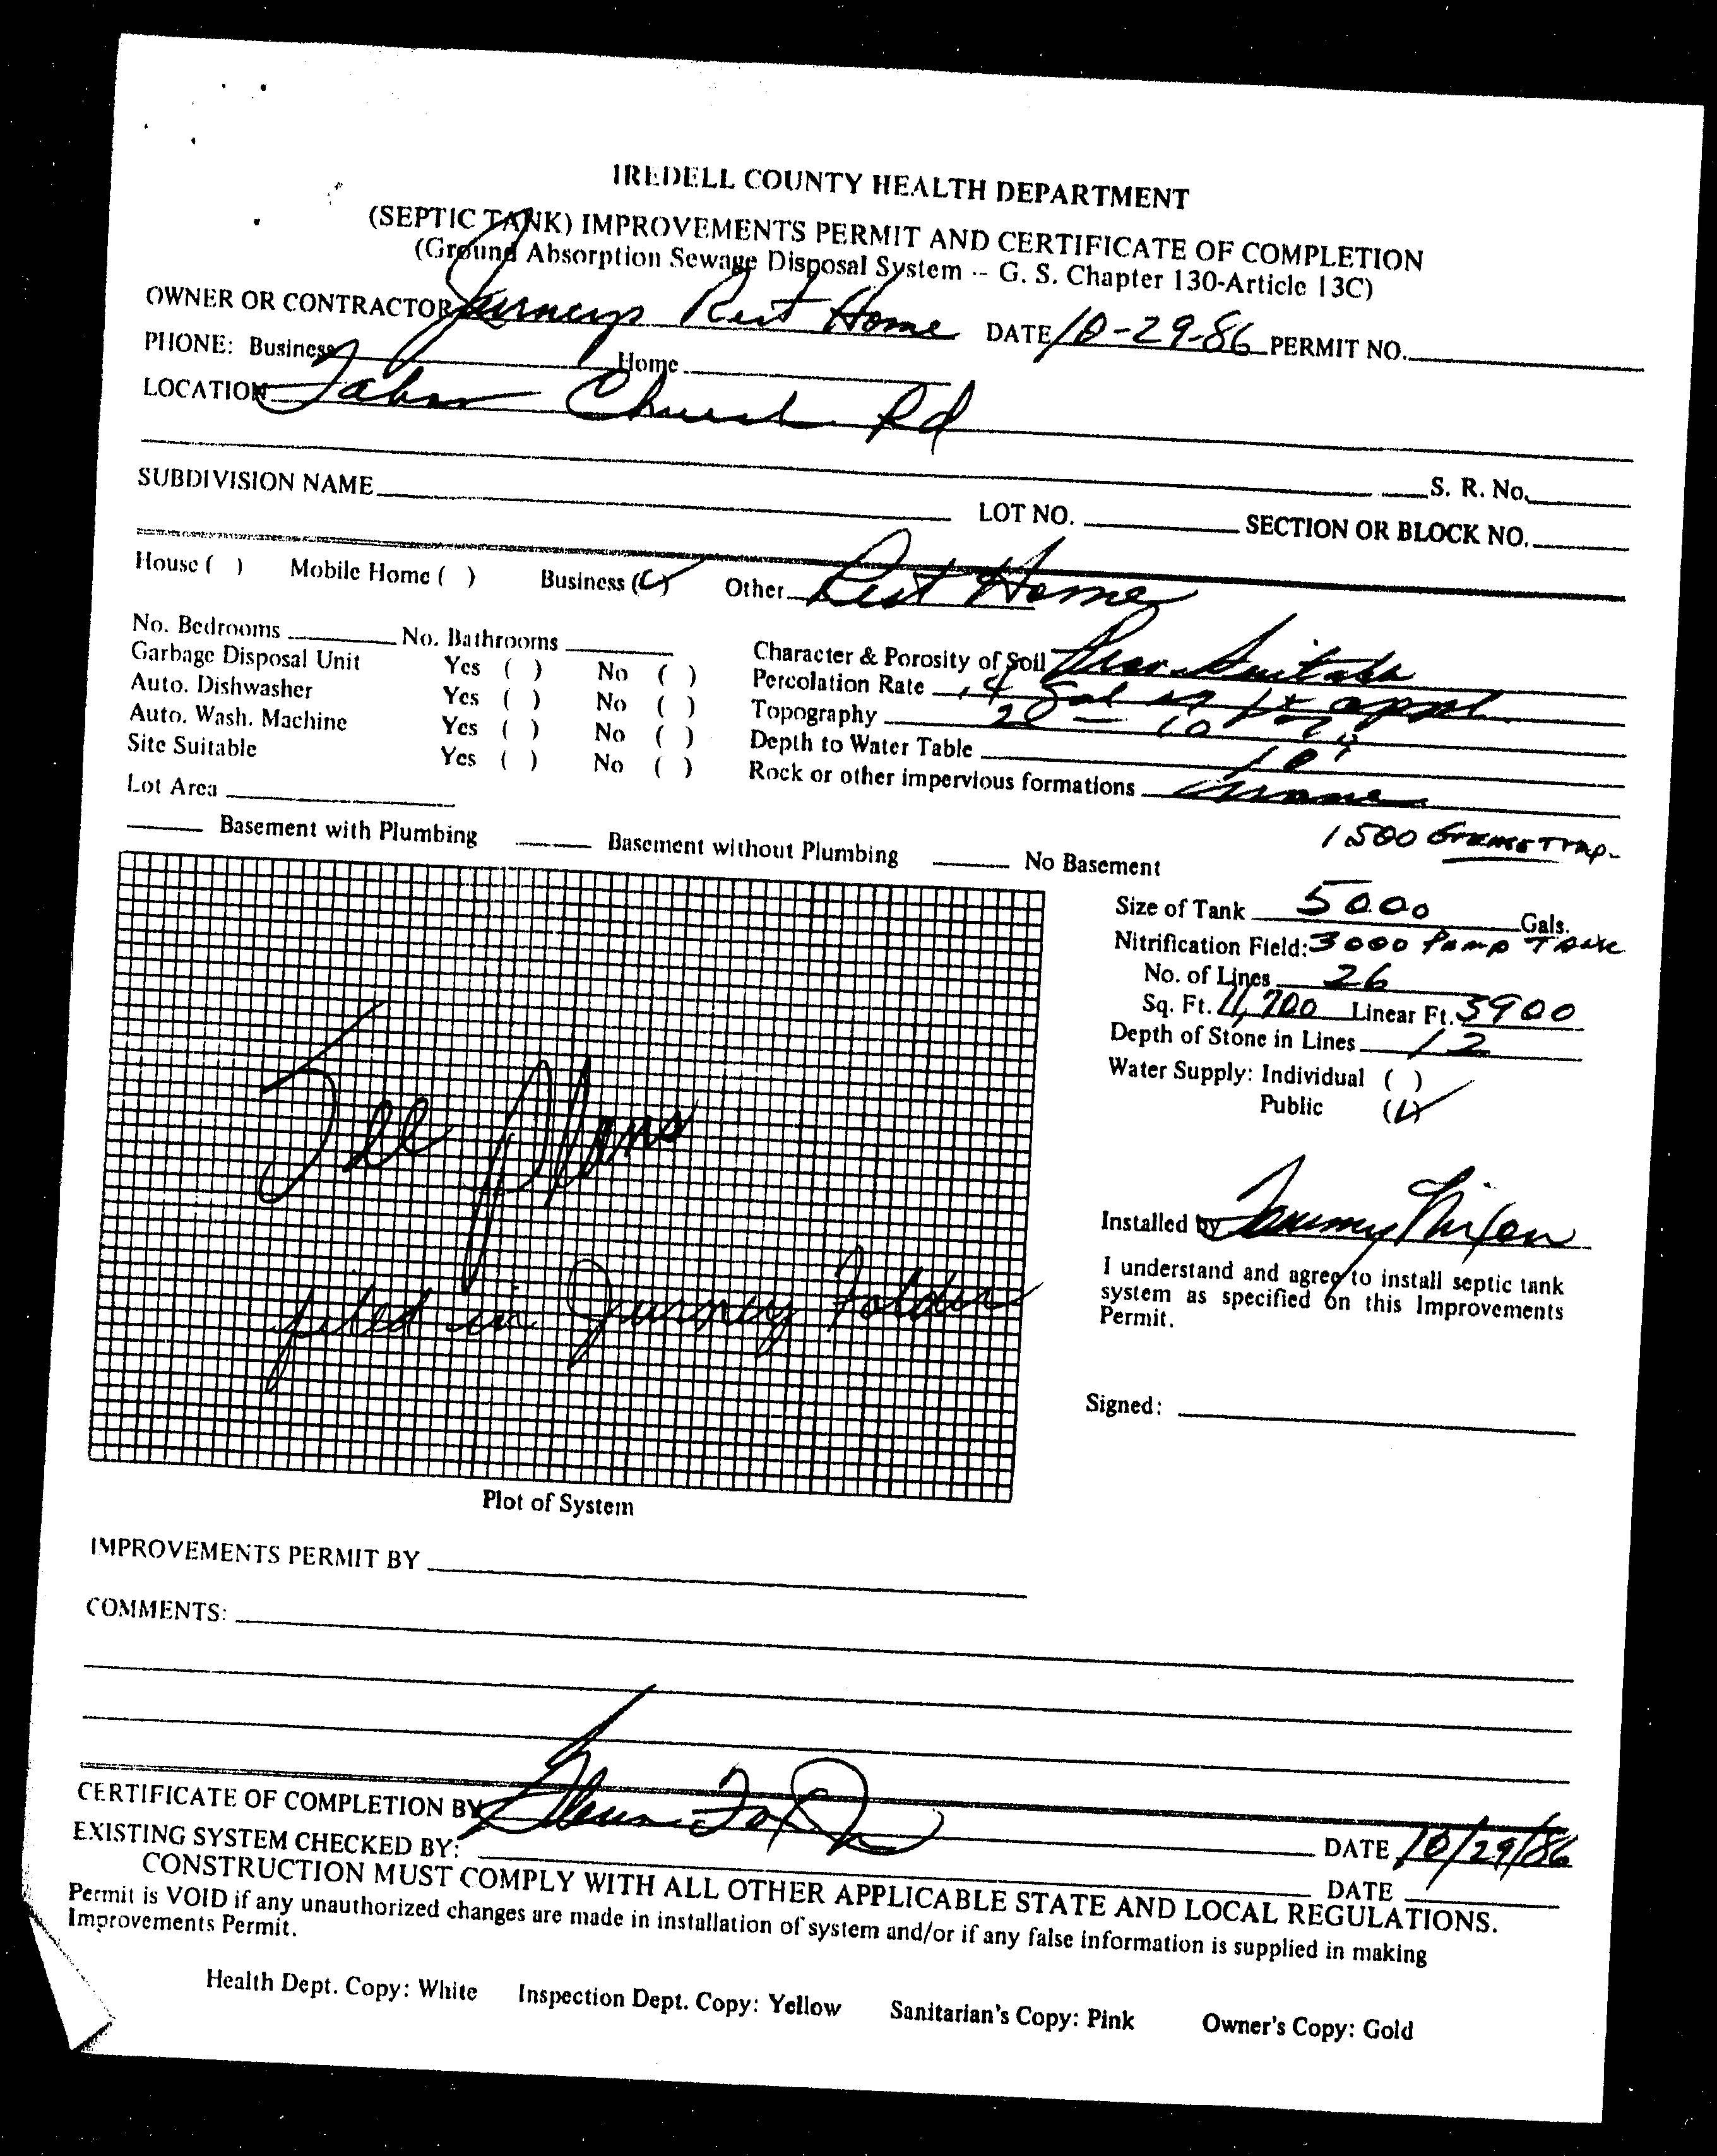 IREDELL COUNTY HEALTH DEPARTMENT
(SEPTIC TANK) IMPROVEMENTS PERMIT AND CERTIFICATE OF COMPLETION
(Ground Absorption Sewage Disposal System -- G. S. Chapter 130-Article 13C)
OWNER OR CONTRACTOR Jurneys Rest Home DATE 10-29-86 PERMIT NO.
PHONE: Business Home
LOCATION Tabor Church Rd
S. R. No.
SUBDIVISION NAME LOT NO. SECTION OR BLOCK NO.
House ( ) Mobile Home ( ) Business (✓) Other Rest Home
No. Bedrooms No. Bathrooms
Garbage Disposal Unit Yes ( ) No ( )
Auto. Dishwasher Yes ( ) No ( )
Auto. Wash. Machine Yes ( ) No ( )
Site Suitable Yes ( ) No ( )
Lot Area
Character & Porosity of Soil Prov. Suitable
Percolation Rate .4 gal
Topography 2 - 10 %
Depth to Water Table 10'
Rock or other impervious formations
Basement with Plumbing Basement without Plumbing No Basement
1500 Grease Trap
Size of Tank 5000 Gals.
Nitrification Field: 3000 Pump Tank
No. of Lines 26
Sq. Ft. 11,700 Linear Ft. 3900
Depth of Stone in Lines 12
Water Supply: Individual ( )
Public (✓)
See Plans
filed in Jurney Folder
Plot of System
Installed by Tommy Nixon
I understand and agree to install septic tank
system as specified on this Improvements
Permit.
Signed:
IMPROVEMENTS PERMIT BY
COMMENTS:
CERTIFICATE OF COMPLETION BY DATE 10/29/86
EXISTING SYSTEM CHECKED BY: DATE
CONSTRUCTION MUST COMPLY WITH ALL OTHER APPLICABLE STATE AND LOCAL REGULATIONS.
Permit is VOID if any unauthorized changes are made in installation of system and/or if any false information is supplied in making
Improvements Permit.
Health Dept. Copy: White Inspection Dept. Copy: Yellow Sanitarian's Copy: Pink Owner's Copy: Gold